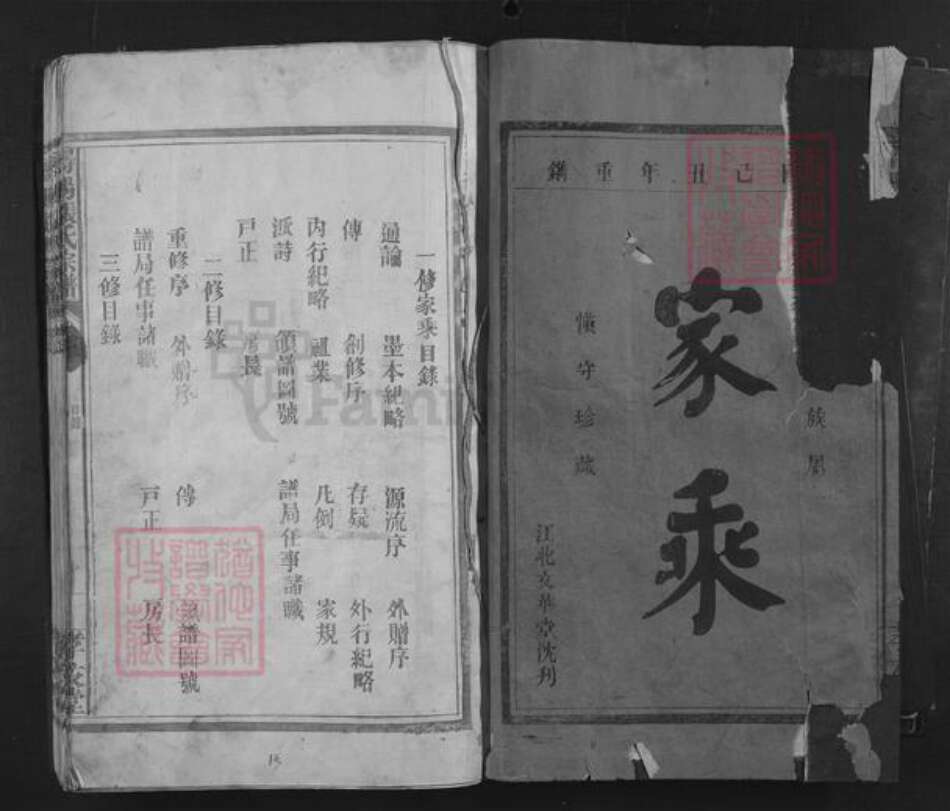 己丑年重鐫
族居
家乘
慎守珍藏
江北文華堂沈刋
一修家乘目錄
通論 墨本紀略 源流序 外贈序
傳 創修序 存疑 外行紀略
內行紀略 祖業 凡例 家規
派詩 領譜圖號 譜局任事諸職
戸正 房長
二修目錄
重修序 外贈序 傳 領譜圖號
譜局任事諸職 戸正 房長
三修目錄
氏宗譜
目錄